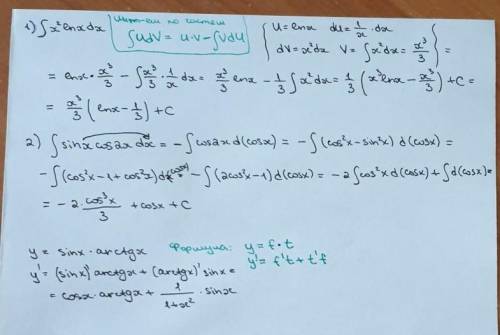 1) ∫x²lnxdx
Интегр-ем по частям
∫UdV = u·v - ∫VdU
{ U = lnx dU = 1/x · dx
dV = x²dx V = ∫x²dx = x³/3 } =
= lnx · x³/3 - ∫x³/3 · 1/x dx = x³/3 lnx - 1/3 ∫x²dx = 1/3 (x³lnx - x³/3) + C =
= x³/3 (lnx - 1/3) + C
2) ∫sinx cos2x dx = -∫cos2x d(cosx) = -∫(cos²x - sin²x) d(cosx) =
-∫(cos²x - 1 + cos²x) d(cosx) = -∫(2cos²x - 1) d(cosx) = -2∫cos²x d(cosx) + ∫d(cosx) =
= -2 · cos³x/3 + cosx + C
y = sinx · arctgx
Формула: y = f · t
y' = f't + t'f
y' = (sinx)' arctgx + (arctgx)' sinx =
= cosx · arctgx + 1/1+x² · sinx